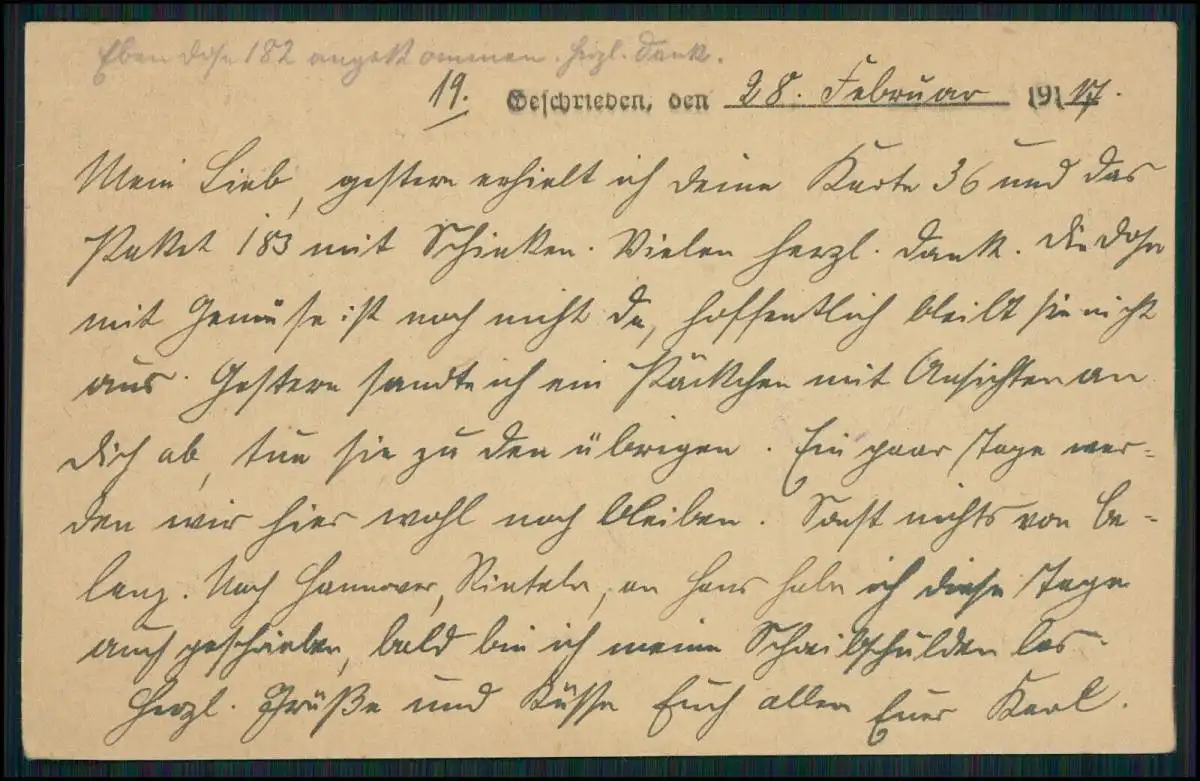 Eben Dose 182 angekommen. Herzl. Dank.
19. Geschrieben, den 28. Februar 1917.
Mein Lieb, gestern erhielt ich deine Karte 36 und das
Paket 183 mit Schinken. Vielen herzl. Dank. Die Dose
mit Gemüse ist noch nicht da, hoffentlich bleibt sie nicht
aus. Gestern sandte ich ein Päckchen mit Ansichten an
dich ab, tue sie zu den übrigen. Ein paar Tage wer-
den wir hier wohl noch bleiben. Sonst nichts von Be-
lang. Nach Hannover, Rinteln, an Hans habe ich diese Tage
auch geschrieben, bald bin ich meine Schreibschulden los.
Herzl. Grüße und Küsse Euch allen Euer Karl.